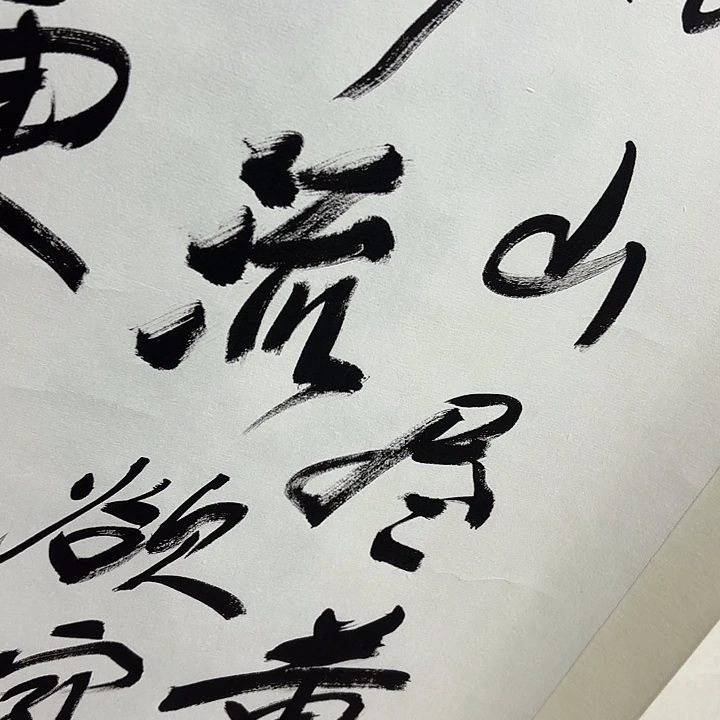 山尽黄
流欲穷
更